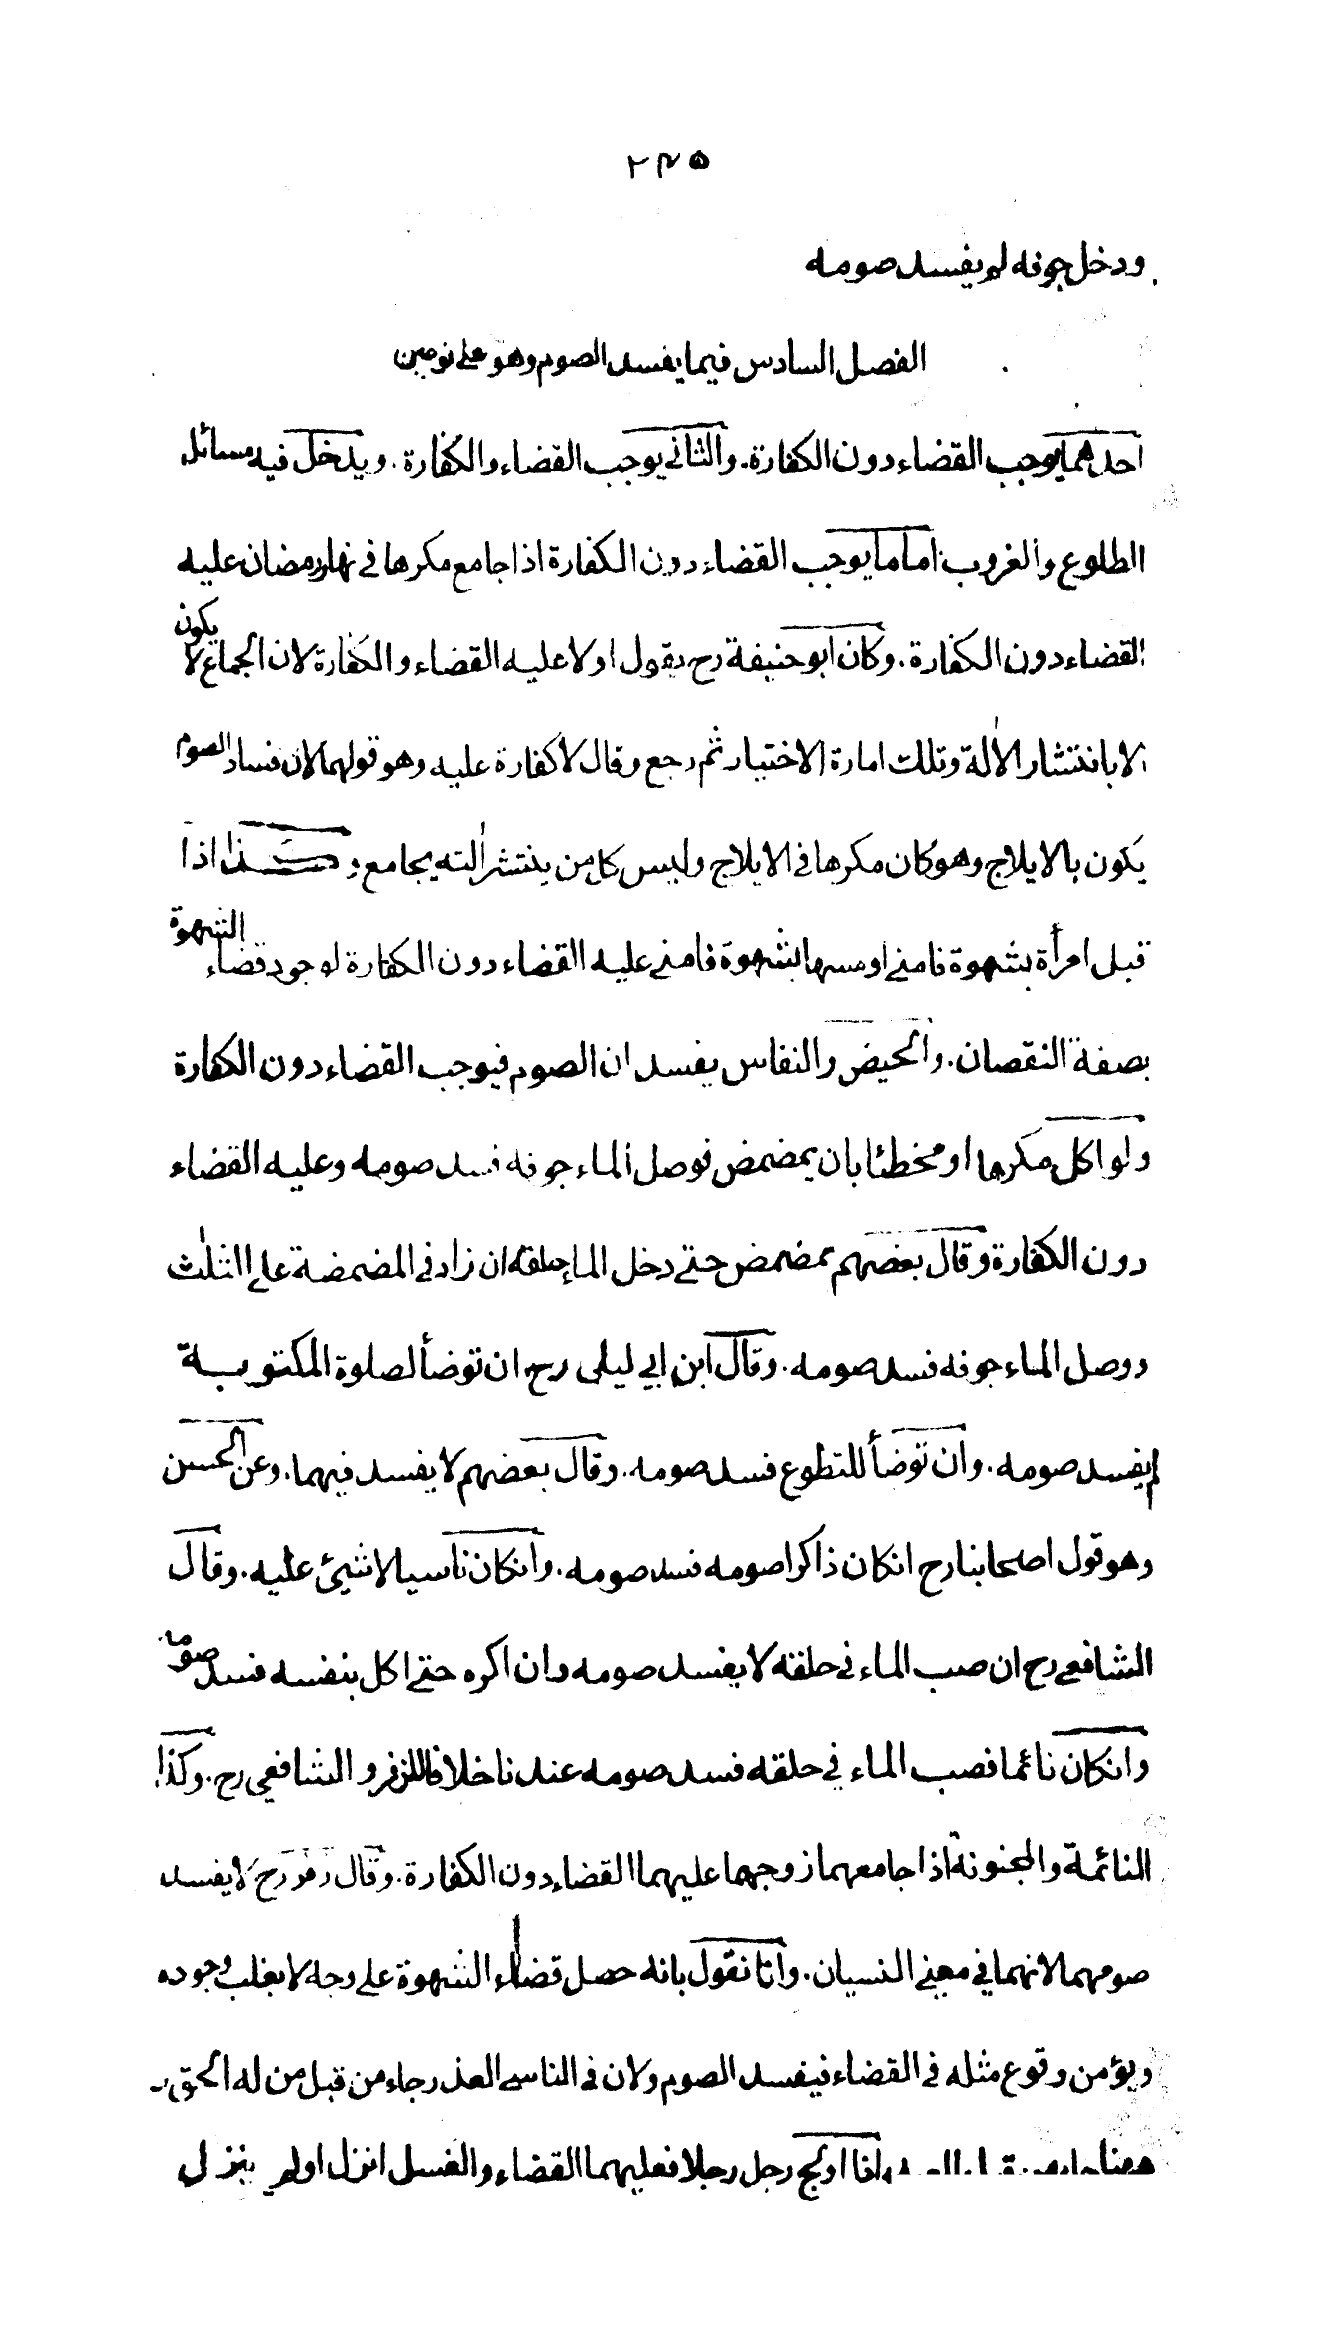 ٢٣٥
ودخل جوفه لم يفسد صومه
الفصل السادس فيما يفسد الصوم وهو على نوعين
احدهما يوجب القضاء دون الكفارة. والثاني يوجب القضاء والكفارة. ويدخل فيه مسائل
الطلوع والغروب اما ما يوجب القضاء دون الكفارة اذا جامع مكرها في نهار رمضان عليه
القضاء دون الكفارة. وكان ابو حنيفة رح يقول اولا عليه القضاء والكفارة لان الجماع لا يكون
الا بانتشار الآلة وتلك امارة الاختيار ثم رجع وقال لا كفارة عليه وهو قولهما لان فساد الصوم
يكون بالايلاج وهو كان مكرها في الايلاج وليس كل من ينتشر آلته يجامع وكذا اذا
قبل امرأة بشهوة فامنى او مسها بشهوة فامنى عليه القضاء دون الكفارة لوجود قضاء الشهوة
بصفة النقصان. والحيض والنفاس يفسدان الصوم فيوجب القضاء دون الكفارة
ولو اكل مكرها او مخطئا بان يمضمض فوصل الماء جوفه فسد صومه وعليه القضاء
دون الكفارة وقال بعضهم يمضمض حتى دخل الماء حلقه ان زاد في المضمضة على الثلث
ووصل الماء جوفه فسد صومه. وقال ابن ابي ليلى رح ان توضأ لصلوة المكتوبة
لم يفسد صومه. وان توضأ للتطوع فسد صومه. وقال بعضهم لا يفسد فيهما. وعن الحسن
وهو قول اصحابنا رح انكان ذاكرا صومه فسد صومه. وانكان ناسيا لا شيئ عليه. وقال
الشافعي رح ان صب الماء في حلقه لا يفسد صومه وان اكره حتى اكل بنفسه فسد صومه
وانكان نائما فصب الماء في حلقه فسد صومه عندنا خلافا للزفر والشافعي رح. وكذا
النائمة والمجنونة اذا جامعهما زوجهما عليهما القضاء دون الكفارة. وقال زفر رح لا يفسد
صومهما لانهما في معنى النسيان. وانا نقول بانه حصل قضاء الشهوة على وجه لا يغلب وجوده
ويؤمن وقوع مثله في القضاء فيفسد الصوم ولان في الناسي العذر جاء من قبل من له الحق
واذا اولج رجل رجلا فعليهما القضاء والغسل انزل او لم ينزل